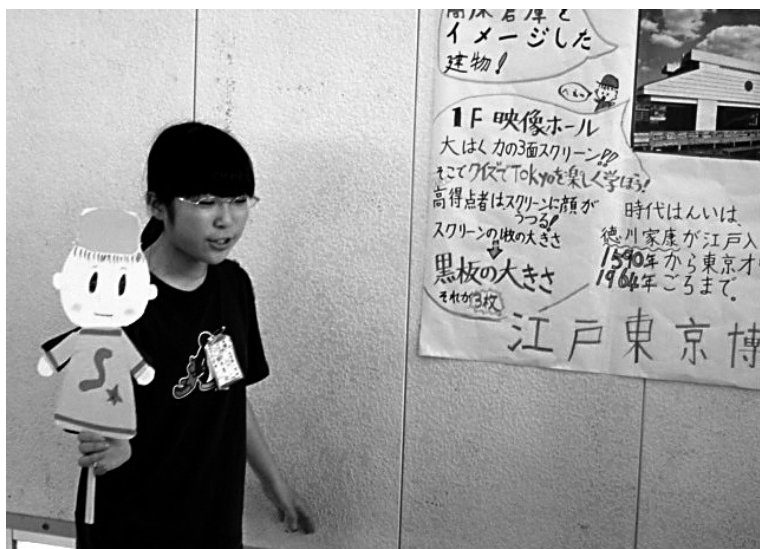 高床倉庫を
イメージした
建物!
1F 映像ホール
大はく力の3面スクリーン!!
そこでクイズでTokyoを楽しく学ぼう!
高得点者はスクリーンに顔が
うつる!
スクリーンの1枚の大きさ
⇓
黒板の大きさ
それが3枚
時代はんいは、
徳川家康が江戸入
1590年から東京オリ
1964年ごろまで。
江戸東京博
S